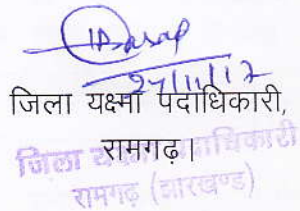 27/11/17
जिला यक्ष्मा पदाधिकारी,
रामगढ़।
जिला यक्ष्मा पदाधिकारी
रामगढ़ (झारखण्ड)